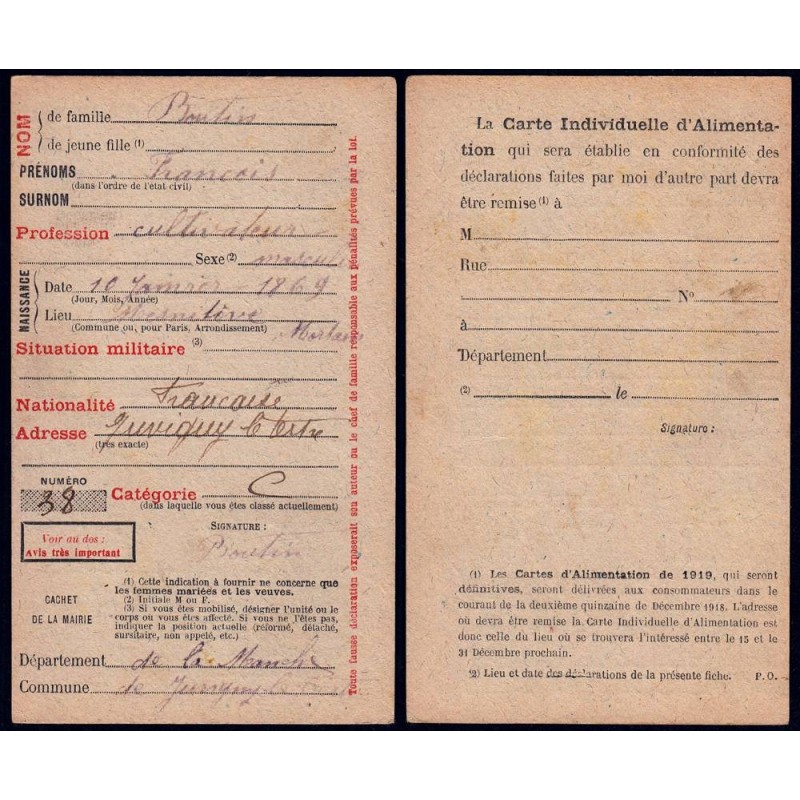 NOM
de famille Boutin
de jeune fille (1)
PRÉNOMS François
(dans l'ordre de l'état civil)
SURNOM
Profession cultivateur
Sexe (2) masculin
NAISSANCE
Date 10 Janvier 1869
(Jour, Mois, Année)
Lieu
(Commune ou, pour Paris, Arrondissement)
Situation militaire (3)
Nationalité Française
Adresse Juvigny le Tertre
(très exacte)
NUMÉRO
38
Catégorie C
(dans laquelle vous êtes classé actuellement)
Voir au dos :
Avis très important
SIGNATURE :
Boutin
CACHET
DE LA MAIRIE
(1) Cette indication à fournir ne concerne que
les femmes mariées et les veuves.
(2) Initiale M ou F.
(3) Si vous êtes mobilisé, désigner l'unité ou le
corps où vous êtes affecté. Si vous ne l'êtes pas,
indiquer la position actuelle (réformé, détaché,
sursitaire, non appelé, etc.)
Département de la Manche
Commune de Juvigny
Toute fausse déclaration exposerait son auteur ou le chef de famille responsable aux pénalités prévues par la loi.
La Carte Individuelle d'Alimenta-
tion qui sera établie en conformité des
déclarations faites par moi d'autre part devra
être remise (1) à
M
Rue
N°
à
Département
(2) le
Signature :
(1) Les Cartes d'Alimentation de 1919, qui seront
définitives, seront délivrées aux consommateurs dans le
courant de la deuxième quinzaine de Décembre 1918. L'adresse
où devra être remise la Carte Individuelle d'Alimentation est
donc celle du lieu où se trouvera l'intéressé entre le 15 et le
31 Décembre prochain.
(2) Lieu et date des déclarations de la présente fiche. P. O.